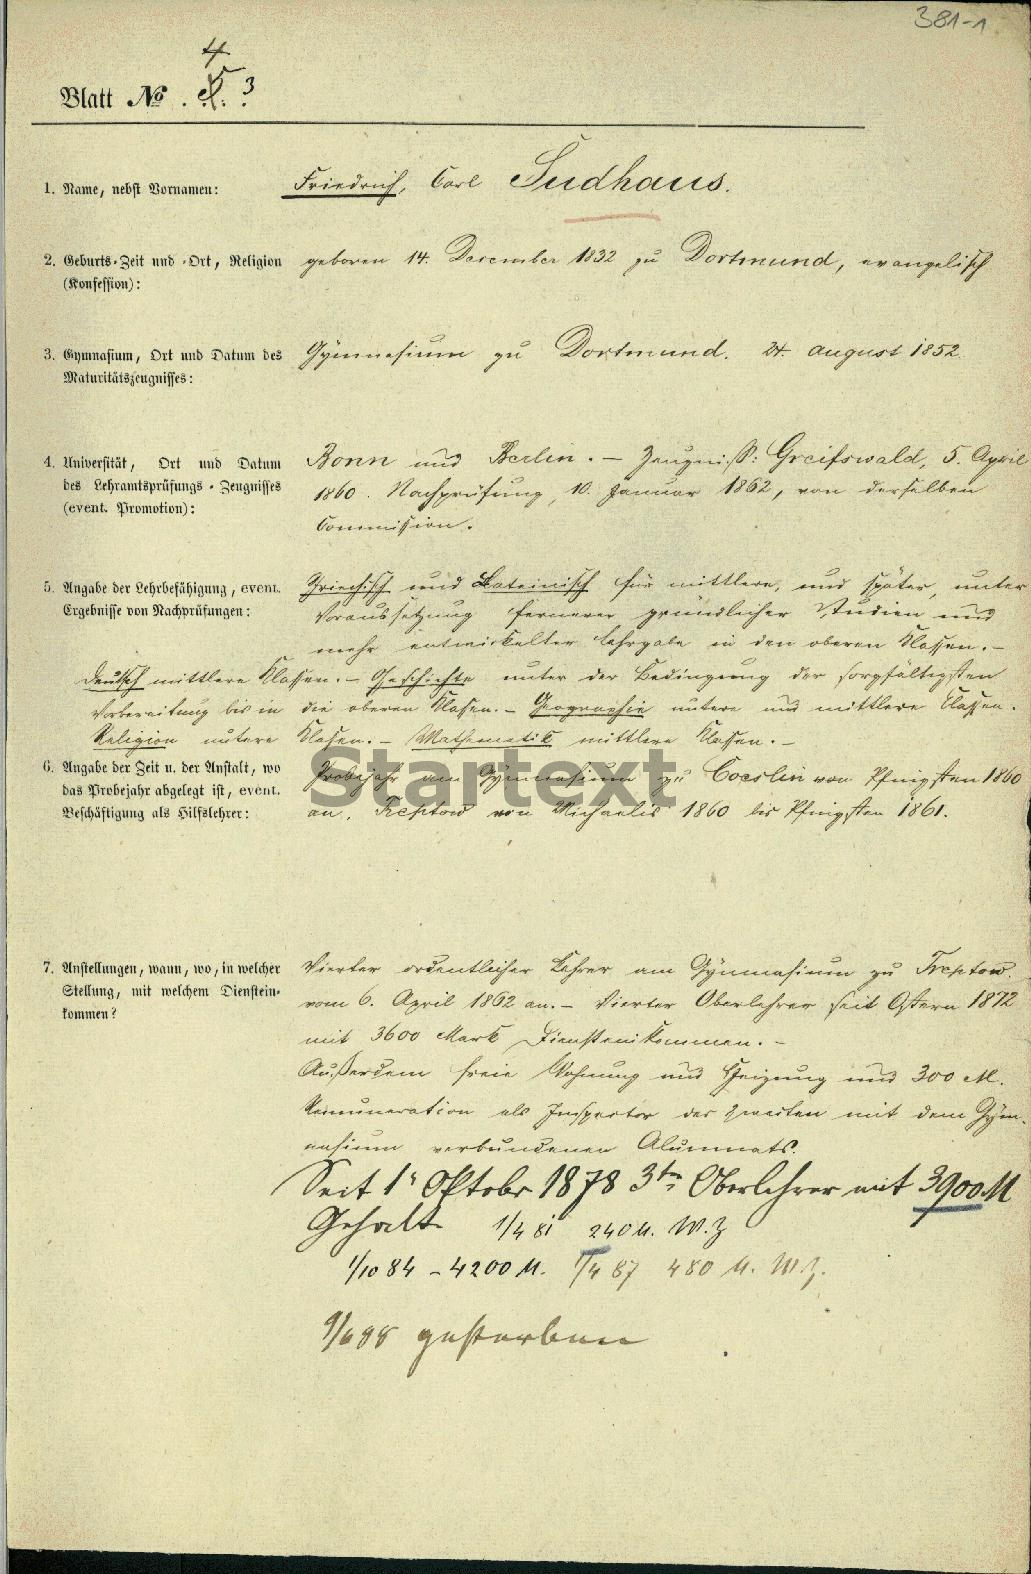 381-1
4
Blatt No. 5. 3
1. Name, nebst Vornamen: Friedrich, Carl Sudhaus.
2. Geburts-Zeit und -Ort, Religion geboren 14. Dezember 1832 zu Dortmund, evangelisch
(Konfession):
3. Gymnasium, Ort und Datum des Gymnasium zu Dortmund. 24. August 1852.
Maturitätszeugnisses:
4. Universität, Ort und Datum Bonn und Berlin. – Zeugniß: Greifswald, 5. April
des Lehramtsprüfungs-Zeugnisses 1860. Nachprüfung, 10. Januar 1862, von derselben
(event. Promotion): Commission.
5. Angabe der Lehrbefähigung, event. Griechisch und Lateinisch für mittlere, und später, unter
Ergebnisse von Nachprüfungen: Voraussetzung fernerer gründlicher Studien und
mehr entwickelter Lehrgabe in den oberen Klassen. –
Deutsch mittlere Klassen. – Geschichte unter der Bedingung der sorgfältigsten
Vorbereitung bis in die oberen Klassen. – Geographie untere und mittlere Classen.
Religion untere Klassen. – Mathematik mittlere Klassen. –
6. Angabe der Zeit u. der Anstalt, wo Probejahr am Gymnasium zu Coeslin von Pfingsten 1860
das Probejahr abgelegt ist, event. an, Treptow von Michaelis 1860 bis Pfingsten 1861.
Beschäftigung als Hilfslehrer:
Startext
7. Anstellungen, wann, wo, in welcher Vierter ordentlicher Lehrer am Gymnasium zu Treptow.
Stellung, mit welchem Dienstein- vom 6. April 1862 an. – Vierter Oberlehrer seit Ostern 1872
kommen? mit 3600 Mark Diensteinkommen. –
Außerdem freie Wohnung und Heizung und 300 M.
Remuneration als Inspector des zweiten mit dem Gym-
nasium verbundenen Alumnats.
Seit 1r Oktobr 1878 3ter Oberlehrer mit 3900 M
Gehalt 1/4 81 240 M. W.Z
1/10 84 – 4200 M. 1/4 87 480 M. W.Z.
9/6 88 gestorben